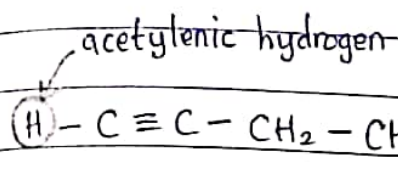 acetylenic hydrogen
H - C ≡ C - CH₂ - CH